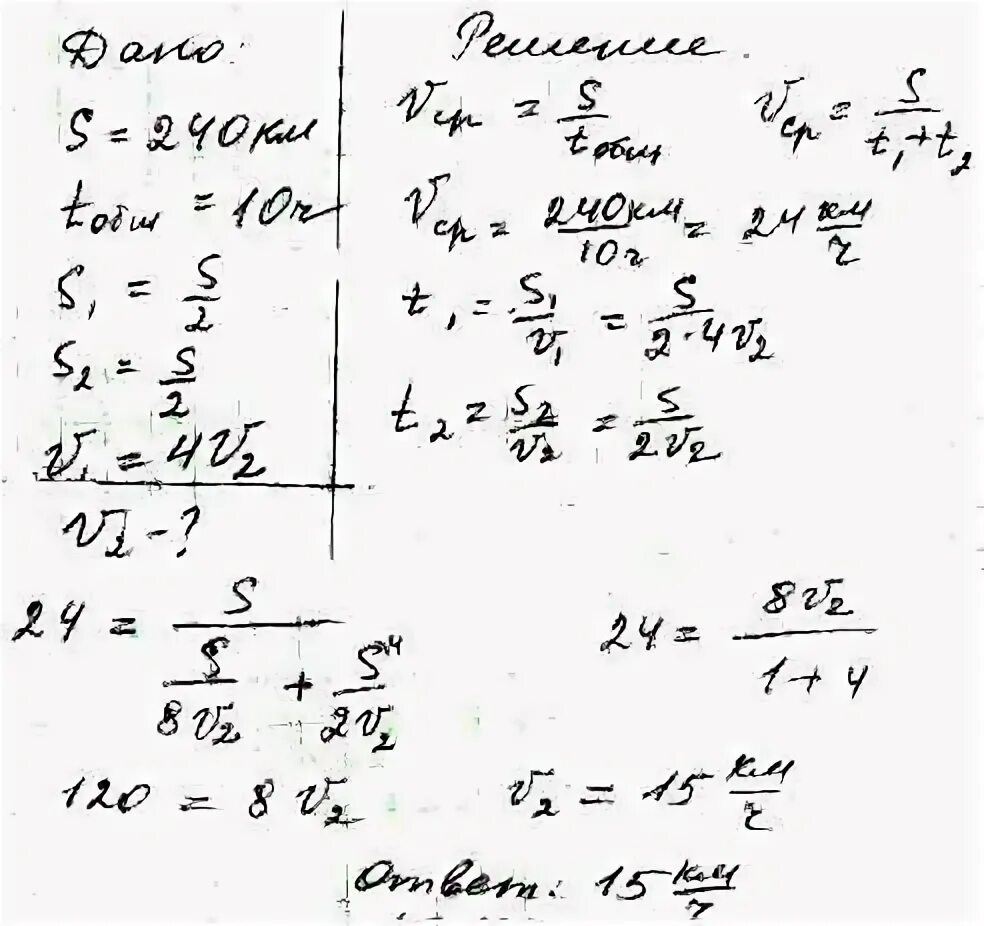 Дано:
S = 240 км
tобщ = 10 ч
S₁ = S/2
S₂ = S/2
v₁ = 4v₂
v₂ - ?
Решение.
vср = S/tобщ    vср = S/(t₁+t₂)
vср = 240 км/10 ч = 24 км/ч
t₁ = S₁/v₁ = S/(2·4v₂)
t₂ = S₂/v₂ = S/(2v₂)
24 = S/(S/(8v₂) + S\4/(2v₂))    24 = 8v₂/(1+4)
120 = 8v₂    v₂ = 15 км/ч
Ответ: 15 км/ч